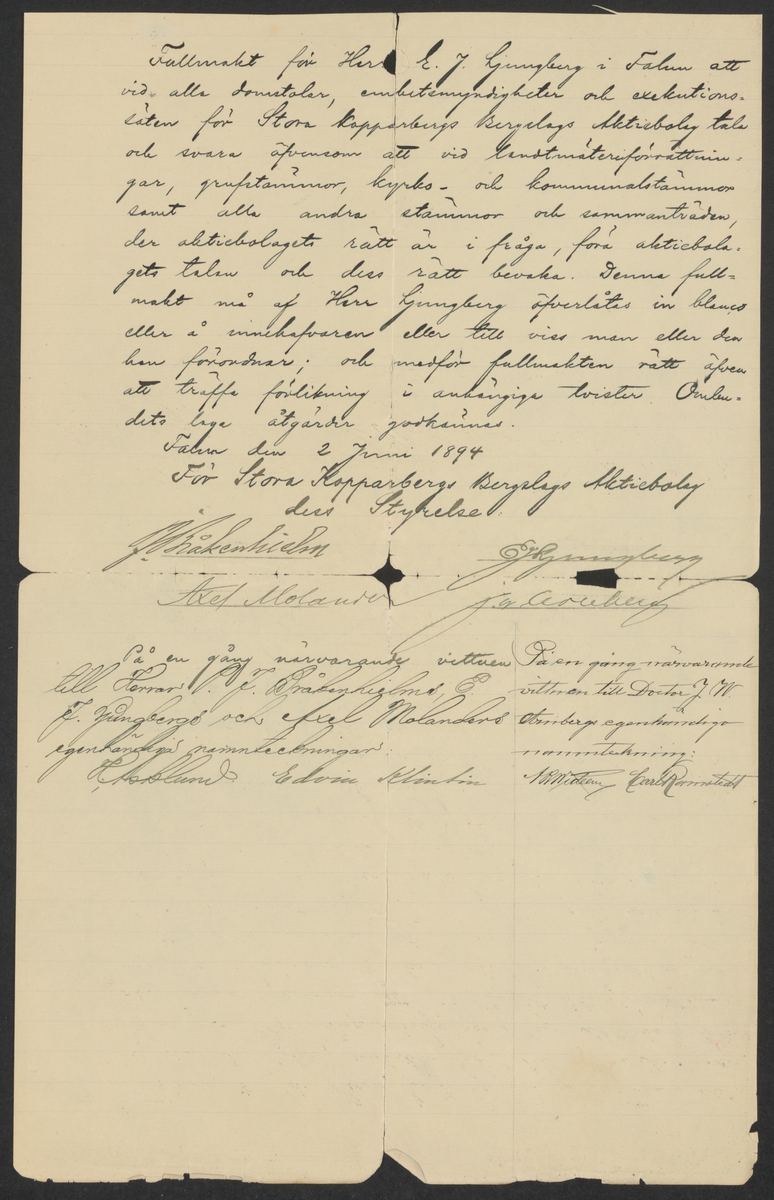 Fullmakt för Herr E. J. Ljungberg i Falun att
vid alla domstolar, embetsmyndigheter och exekutions-
säten för Stora Kopparbergs Bergslags Aktiebolag tala
och svara äfvensom att vid landtmäteriförrättnin-
gar, grufstämmor, kyrko- och kommunalstämmor
samt alla andra stämmor och sammanträden,
der aktiebolagets rätt är i fråga, föra aktiebola-
gets talan och dess rätt bevaka. Denna full-
makt må af Herr Ljungberg öfverlåtas in blanco
eller å innehafvaren eller till viss man eller den
han förordnar; och medför fullmakten rätt äfven
att träffa förlikning i anhängiga tvister. Ombu-
dets laga åtgärder godkännas.
Falun den 2 Juni 1894
För Stora Kopparbergs Bergslags Aktiebolag
dess Styrelse:
Bråkenhielm
E J Ljungberg
Axel Molander
J. W. Arnberg
På en gång närvarande vittnen
till Herrar P. J. Bråkenhielms, E.
J. Ljungbergs och Axel Molanders
egenhändiga namnteckningar:
H. Asklund Edvin Klintin
På en gång närvarande
vittnen till Doctor J. W.
Arnbergs egenhändiga
namnteckning:
Carl Ramstedt